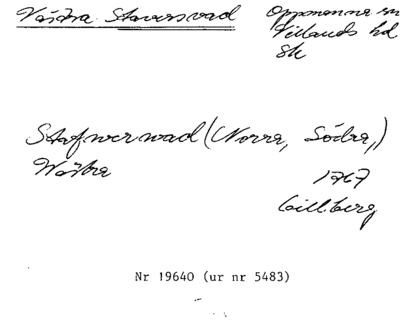 Västra Staversvad
Oppmanna sn
Villands hd
Sk
Stafwerwad (Norra, Södra,)
Wästra
1767
Gillberg
Nr 19640 (ur nr 5483)